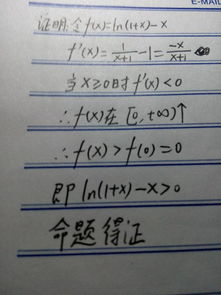 E-MAIL
证明:令f(x)=ln(1+x)-x
f'(x)=1/(x+1)-1=-x/(x+1)
当x≥0时f'(x)<0
∴f(x)在[0,+∞)↑
∴f(x)>f(0)=0
即ln(1+x)-x>0
命题得证